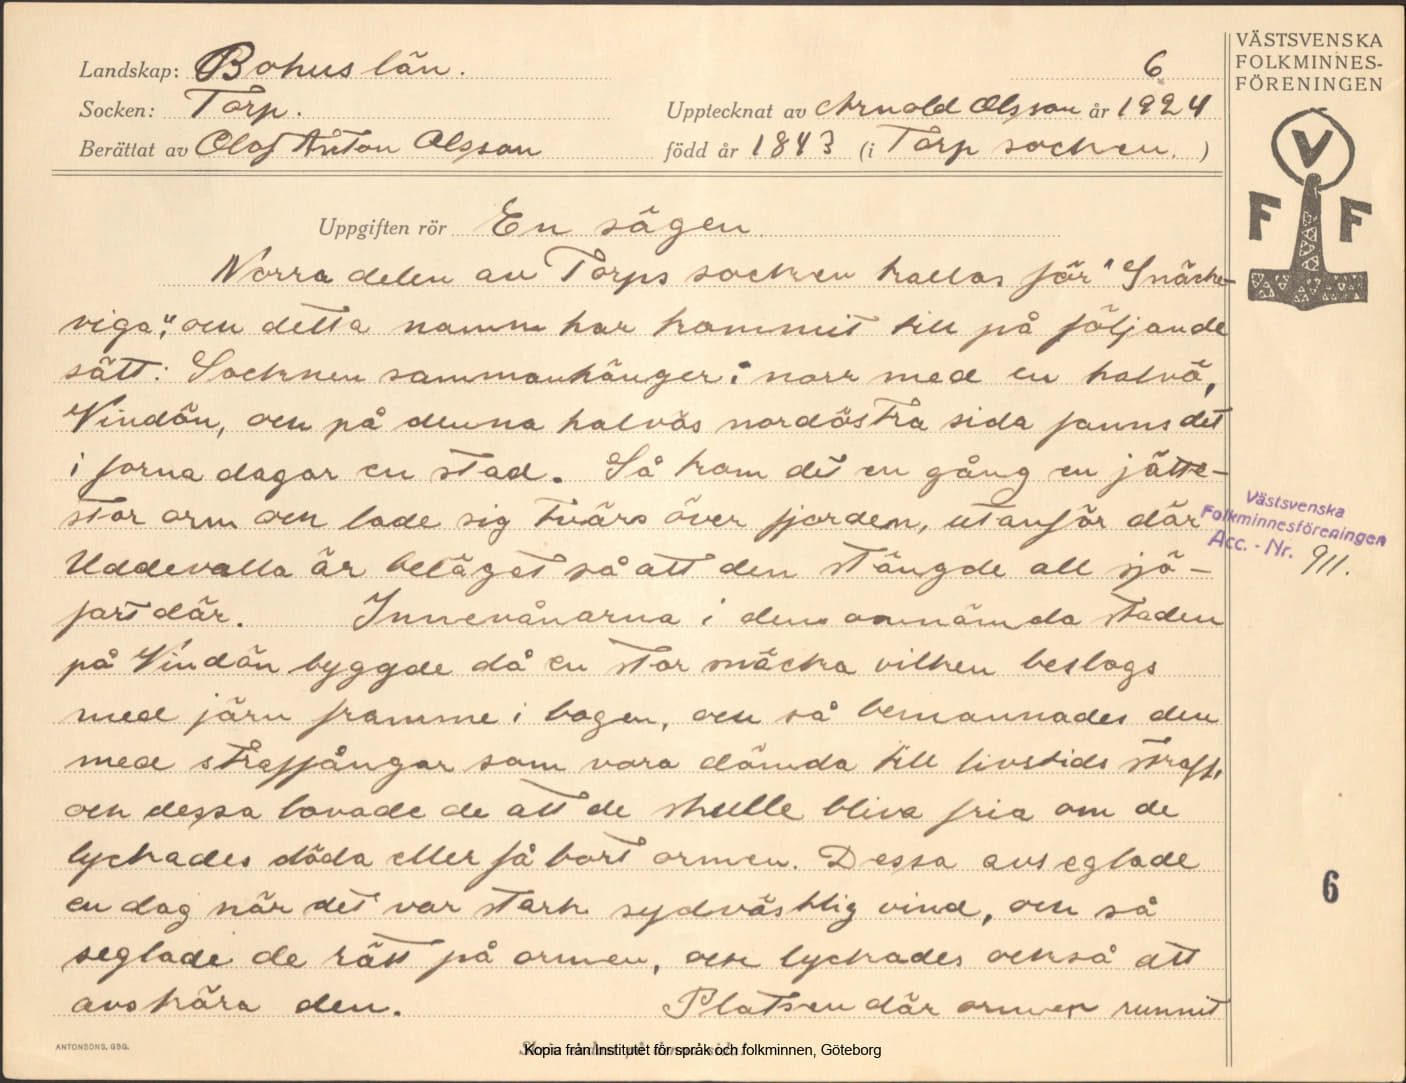 Landskap: Bohuslän.
6
Socken: Torp.
Upptecknat av Arnold Olsson år 1924
Berättat av Olof Anton Olsson
född år 1843 (i Torp socken. )
VÄSTSVENSKA
FOLKMINNES-
FÖRENINGEN
V
F F
Uppgiften rör En sägen.
Norra delen av Torps socken kallas för "Snäcke-
viga", och detta namn har kommit till på följande
sätt: Socknen sammanhänger i norr med en halvö,
Vindön, och på denna halvös nordöstra sida fanns det
i forna dagar en stad. Så kom det en gång en jätte-
stor orm och lade sig tvärs över fjorden, utanför där
Uddevalla är beläget så att den stängde all sjö-
fart där. Innevånarna i den omnämda staden
på Vindön byggde då en stor snäcka vilken beslogs
med järn framme i bogen, och så bemannades den
med straffångar som vora dömda till livstids straff,
och dessa lovade de att de skulle bliva fria om de
lyckades döda eller få bort ormen. Dessa avseglade
en dag när det var stark sydvästlig vind, och så
seglade de rätt på ormen, och lyckades också att
avskära den. Platsen där ormen runnit
Västsvenska
Folkminnesföreningen
Acc. - Nr. 911.
6
ANTONSONS, GBG.
Kopia från Institutet för språk och folkminnen, Göteborg